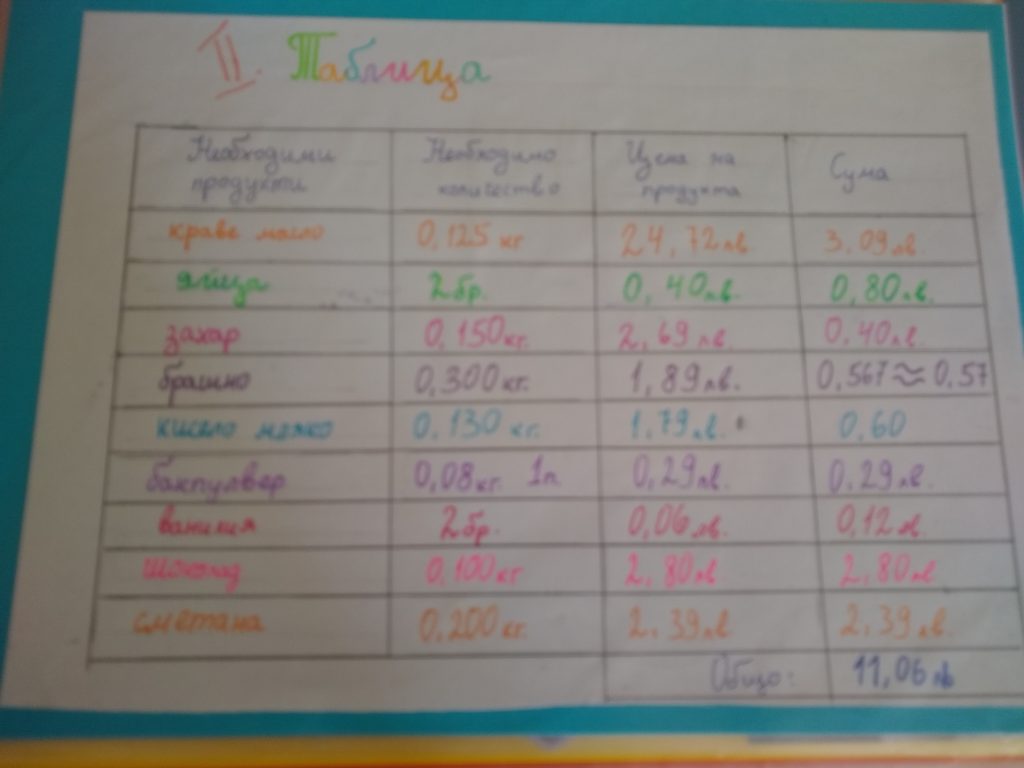 II. Таблица
Необходими продукти Необходимо количество Цена на продукта Сума
краве масло 0,125 кг 24,72лв 3,09лв.
яйца 2бр. 0,40лв. 0,80лв.
захар 0,150кг. 2,69лв. 0,40лв
брашно 0,300кг. 1,89лв. 0,567≈0,57
кисело мляко 0,130 кг. 1,79лв. 0,60
бакпулвер 0,08кг. 1п. 0,29лв. 0,29лв.
ванилия 2бр. 0,06лв. 0,12лв.
шоколад 0,100кг 2,80лв 2,80лв
сметана 0,200кг. 2,39лв 2,39лв.
Общо: 11,06лв